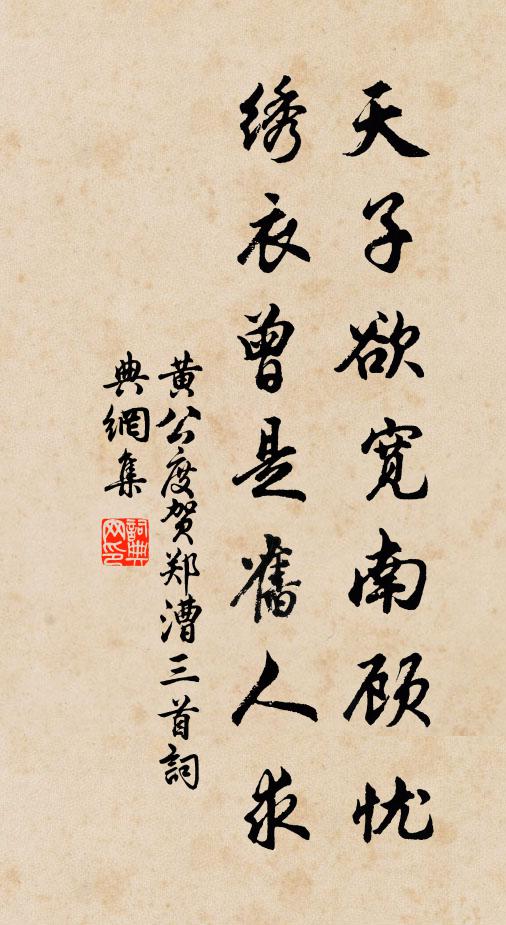 天子欲宽南顾忧
绣衣曾是舊人求
黄公度贺郑漕三首詞
典網集
詞典网印